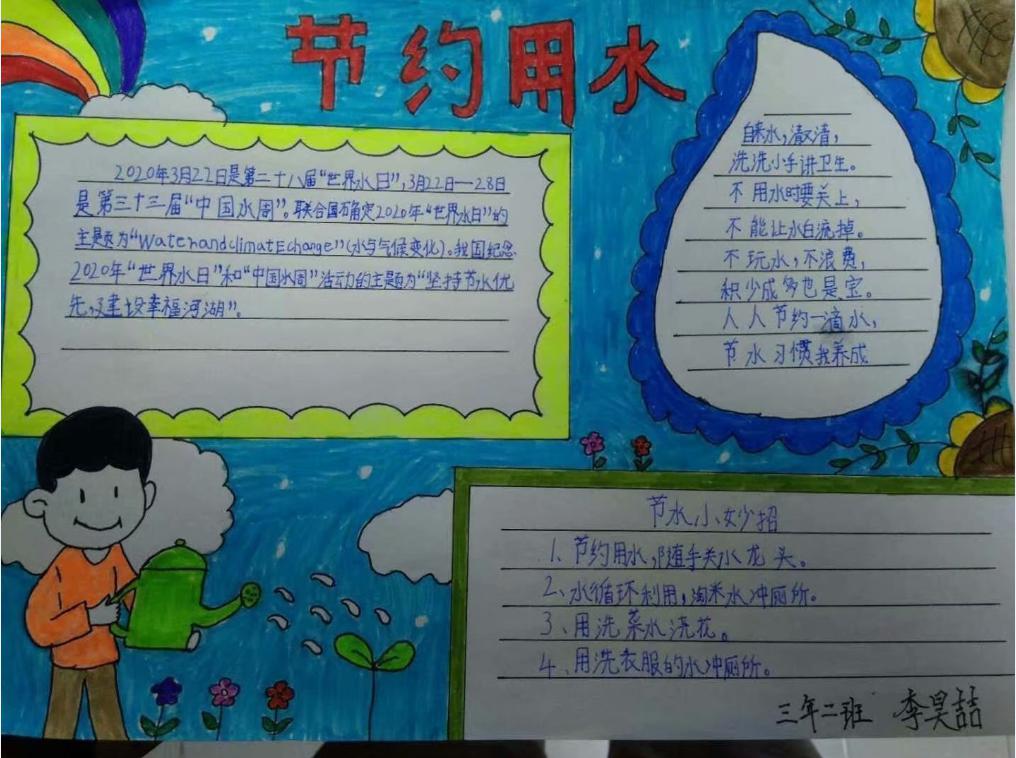 节约用水
2020年3月22日是第二十八届“世界水日”,3月22日—28日
是第三十三届“中国水周”。联合国确定2020年“世界水日”的
主题为“WaterandclimatEchange”(水与气候变化)。我国纪念
2020年“世界水日”和“中国水周”活动的主题为“坚持节水优
先,建设幸福河湖”。
自来水,清又清,
洗洗小手讲卫生。
不用水时要关上,
不能让水白流掉。
不玩水,不浪费,
积少成多也是宝。
人人节约一滴水,
节水习惯我养成
节水小妙招
1、节约用水,随手关水龙头。
2、水循环利用,淘米水冲厕所。
3、用洗菜水浇花。
4、用洗衣服的水冲厕所。
三年二班 李昊喆